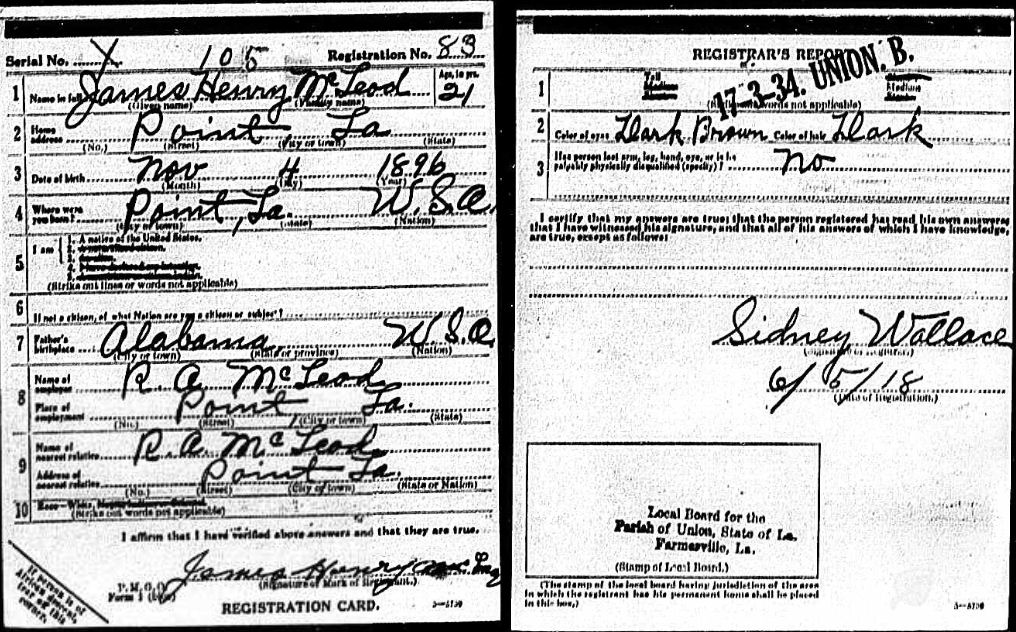 Serial No. X 105 Registration No. 83
1 Name in full James Henry McLeod Age, in yrs. 21
(Given name) (Family name)
2 Home address Point La
(No.) (Street) (City or town) (State)
3 Date of birth Nov 4 1896
(Month) (Day) (Year)
4 Where were you born? Point, La. U.S.A.
(City or town) (State) (Nation)
5 I am 1. A native of the United States.
2.
3.
4.
5.
(Strike out lines or words not applicable)
6 If not a citizen, of what Nation are you a citizen or subject?
7 Father's birthplace Alabama U.S.A.
(City or town) (State or province) (Nation)
8 Name of employer R. A. McLeod
Place of employment Point, La.
(No.) (Street) (City or town) (State)
9 Name of nearest relative R. A. McLeod
Address of nearest relative Point La.
(No.) (Street) (City or town) (State or Nation)
10 Race—White,
(Strike out words not applicable)
I affirm that I have verified above answers and that they are true.
James Henry
P. M. G. O.
Form 1
(Signature or Mark of Registrant.)
REGISTRATION CARD.
If person is of African descent, tear off this corner.
REGISTRAR'S REPORT
17-3-34. UNION. B.
1 Tall Medium
Medium
words not applicable)
2 Color of eyes Dark Brown Color of hair Dark
3 Has person lost arm, leg, hand, eye, or is he palpably physically disqualified (specify)? no
I certify that my answers are true; that the person registered has read his own answers
that I have witnessed his signature, and that all of his answers of which I have knowledge,
are true, except as follows:
Sidney Wallace
(Signature of Registrar)
6/5/18
(Date of Registration.)
Local Board for the
Parish of Union, State of La.
Farmerville, La.
(Stamp of Local Board.)
(The stamp of the local board having jurisdiction of the area
in which the registrant has his permanent home shall be placed
in this box.)